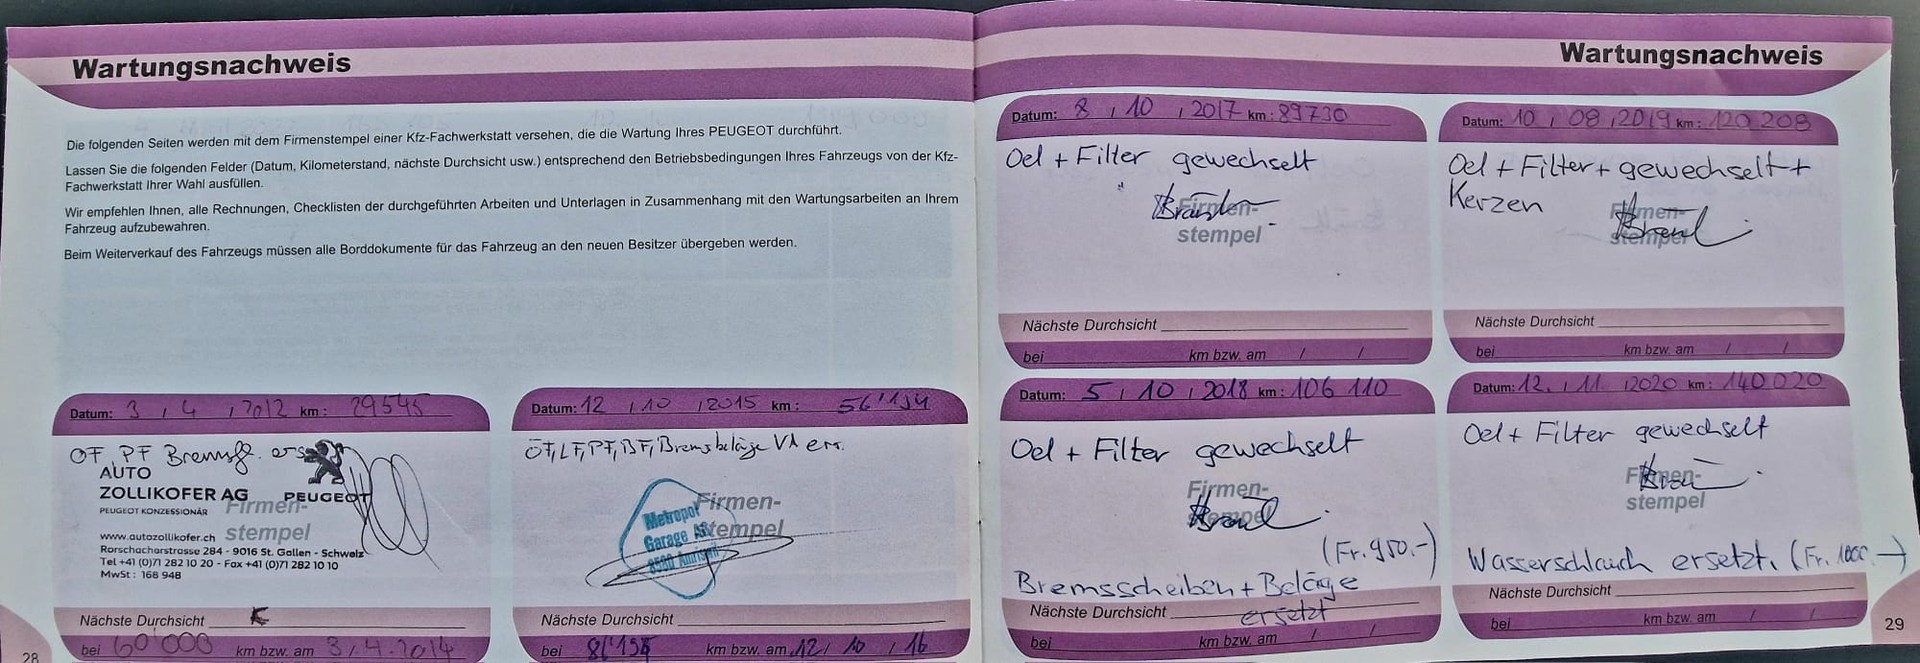 Wartungsnachweis
Die folgenden Seiten werden mit dem Firmenstempel einer Kfz-Fachwerkstatt versehen, die die Wartung Ihres PEUGEOT durchführt.
Lassen Sie die folgenden Felder (Datum, Kilometerstand, nächste Durchsicht usw.) entsprechend den Betriebsbedingungen Ihres Fahrzeugs von der Kfz-
Fachwerkstatt Ihrer Wahl ausfüllen.
Wir empfehlen Ihnen, alle Rechnungen, Checklisten der durchgeführten Arbeiten und Unterlagen in Zusammenhang mit den Wartungsarbeiten an Ihrem
Fahrzeug aufzubewahren.
Beim Weiterverkauf des Fahrzeugs müssen alle Borddokumente für das Fahrzeug an den neuen Besitzer übergeben werden.
Datum: 3 / 4 / 2012 km: 29545
OF, PF Bremsfl. ers
AUTO
ZOLLIKOFER AG PEUGEOT
PEUGEOT KONZESSIONÄR
Firmen-
stempel
www.autozollikofer.ch
Rorschacherstrasse 284 - 9016 St. Gallen - Schweiz
Tel +41 (0)71 282 10 20 - Fax +41 (0)71 282 10 10
MwSt: 168 948
Nächste Durchsicht
bei 60'000 km bzw. am 3.4.2014
28
Datum: 12 / 10 / 2015 km:
ÖF, LF, PF, BF, Bremsbeläge VA ern.
Firmen-
stempel
Metropol
Garage AG
8580 Amriswil
Nächste Durchsicht
bei km bzw. am 12 / 10 / 16
Wartungsnachweis
Datum: 8 / 10 / 2017 km: 89730
Oel + Filter gewechselt
Firmen-
stempel
Nächste Durchsicht
bei km bzw. am / /
Datum: 10 / 08 / 2019 km: 120 208
Oel + Filter + gewechselt +
Kerzen
Firmen-
stempel
Nächste Durchsicht
bei km bzw. am / /
Datum: 5 / 10 / 2018 km: 106 110
Oel + Filter gewechselt
Firmen-
stempel
(Fr. 950.-)
Bremsscheiben + Beläge
ersetzt
Nächste Durchsicht
bei km bzw. am / /
Datum: 12. / 11. / 2020 km: 140 020
Oel + Filter gewechselt
Firmen-
stempel
Wasserschlauch ersetzt. (Fr. 1000.-)
Nächste Durchsicht
bei km bzw. am / /
29